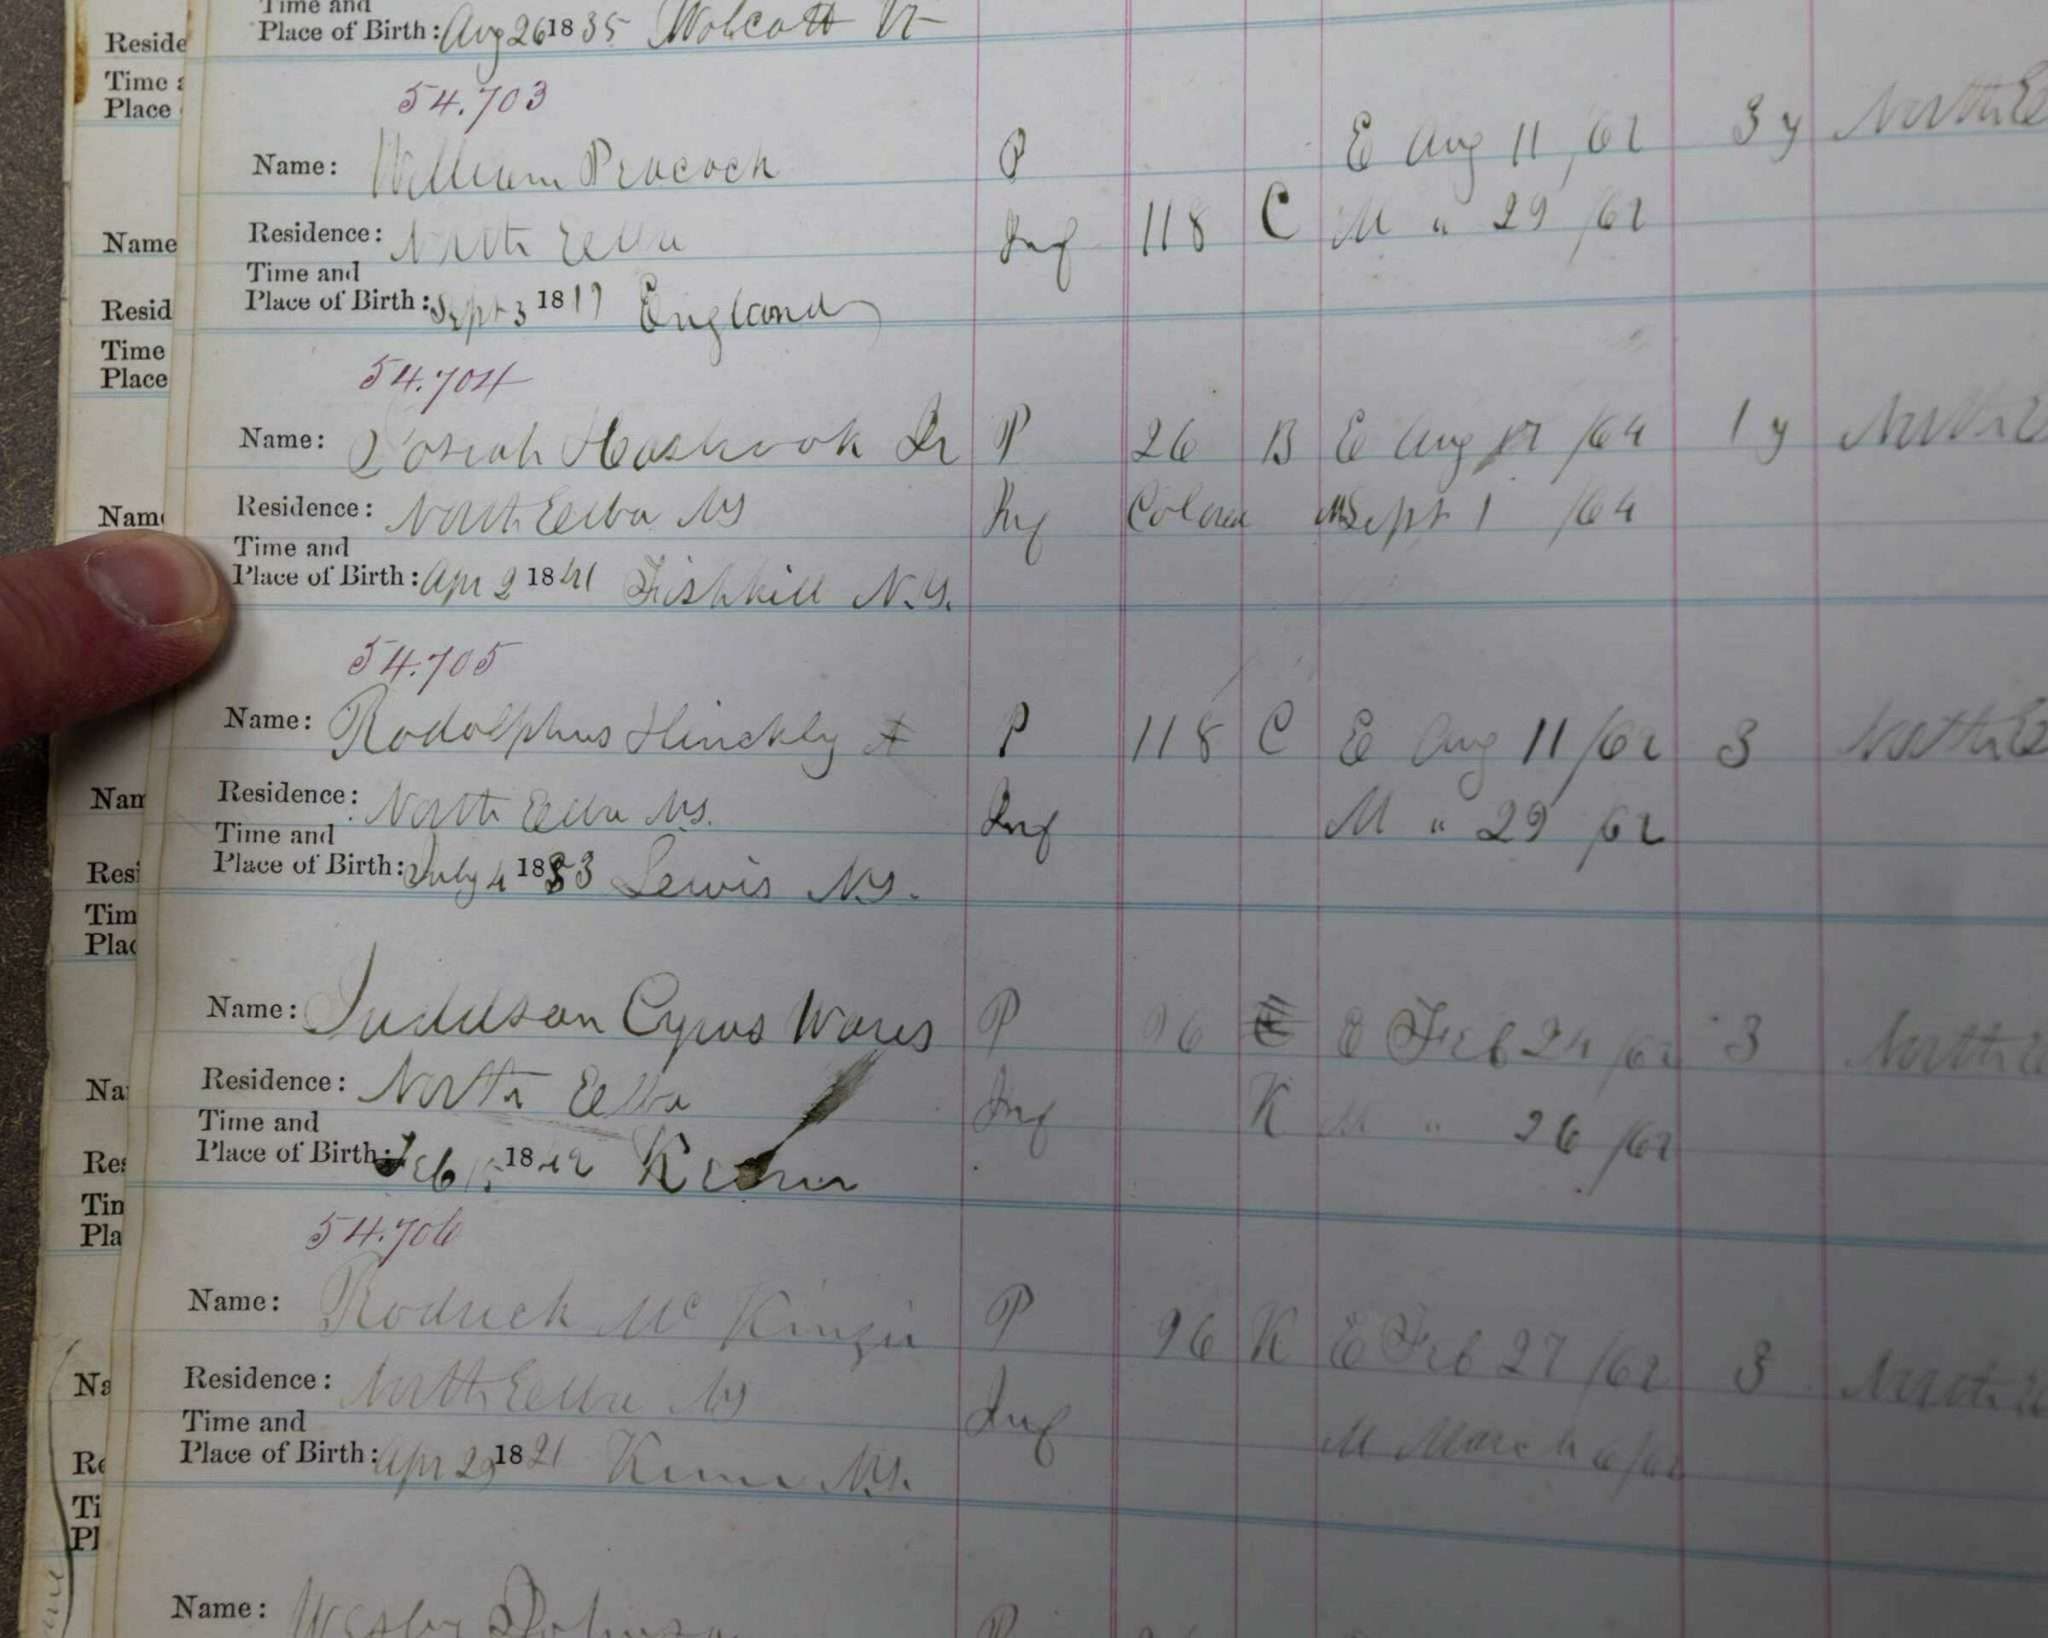 Time and
Reside
Place of Birth: Aug 26 1835 Wolcott Vt
Time a
Place
54.703
Name: William Peacock P E Aug 11, /62 3 y North E
Name Residence: North Elba Inf 118 C M " 29 /62
Time and
Resid Place of Birth: Sept 3 1817 England
Time
Place
54.704
Name: Josiah Hasbrook Jr P 26 B E Aug 17 /64 1 y North E
Name Residence: North Elba NY Inf Colored M Sept 1 /64
Time and
Place of Birth: Apr 2 1841 Fishkill N.Y.
54.705
Name: Rodolphus Hinckly P 118 C E Aug 11 /62 3 North E
Nam Residence: North Elba NY. Inf M " 29 /62
Time and
Resi Place of Birth: July 4 1833 Lewis N.Y.
Tim
Plac
Name: Juddson Cyrus Wares P 96 E Feb 24 /62 3 North E
Na Residence: North Elba Inf K M " 26 /62
Time and
Res Place of Birth: Feb 1842 Keene
Tim
Pla
54.706
Name: Rodrick Mc Kinzie P 96 K E Feb 27 /62 3 North E
Na Residence: North Elba NY Inf M March 6/62
Time and
Re Place of Birth: Apr 29 1821 Keene N.Y.
Ti
Pl
Name: Wesley Johnson P